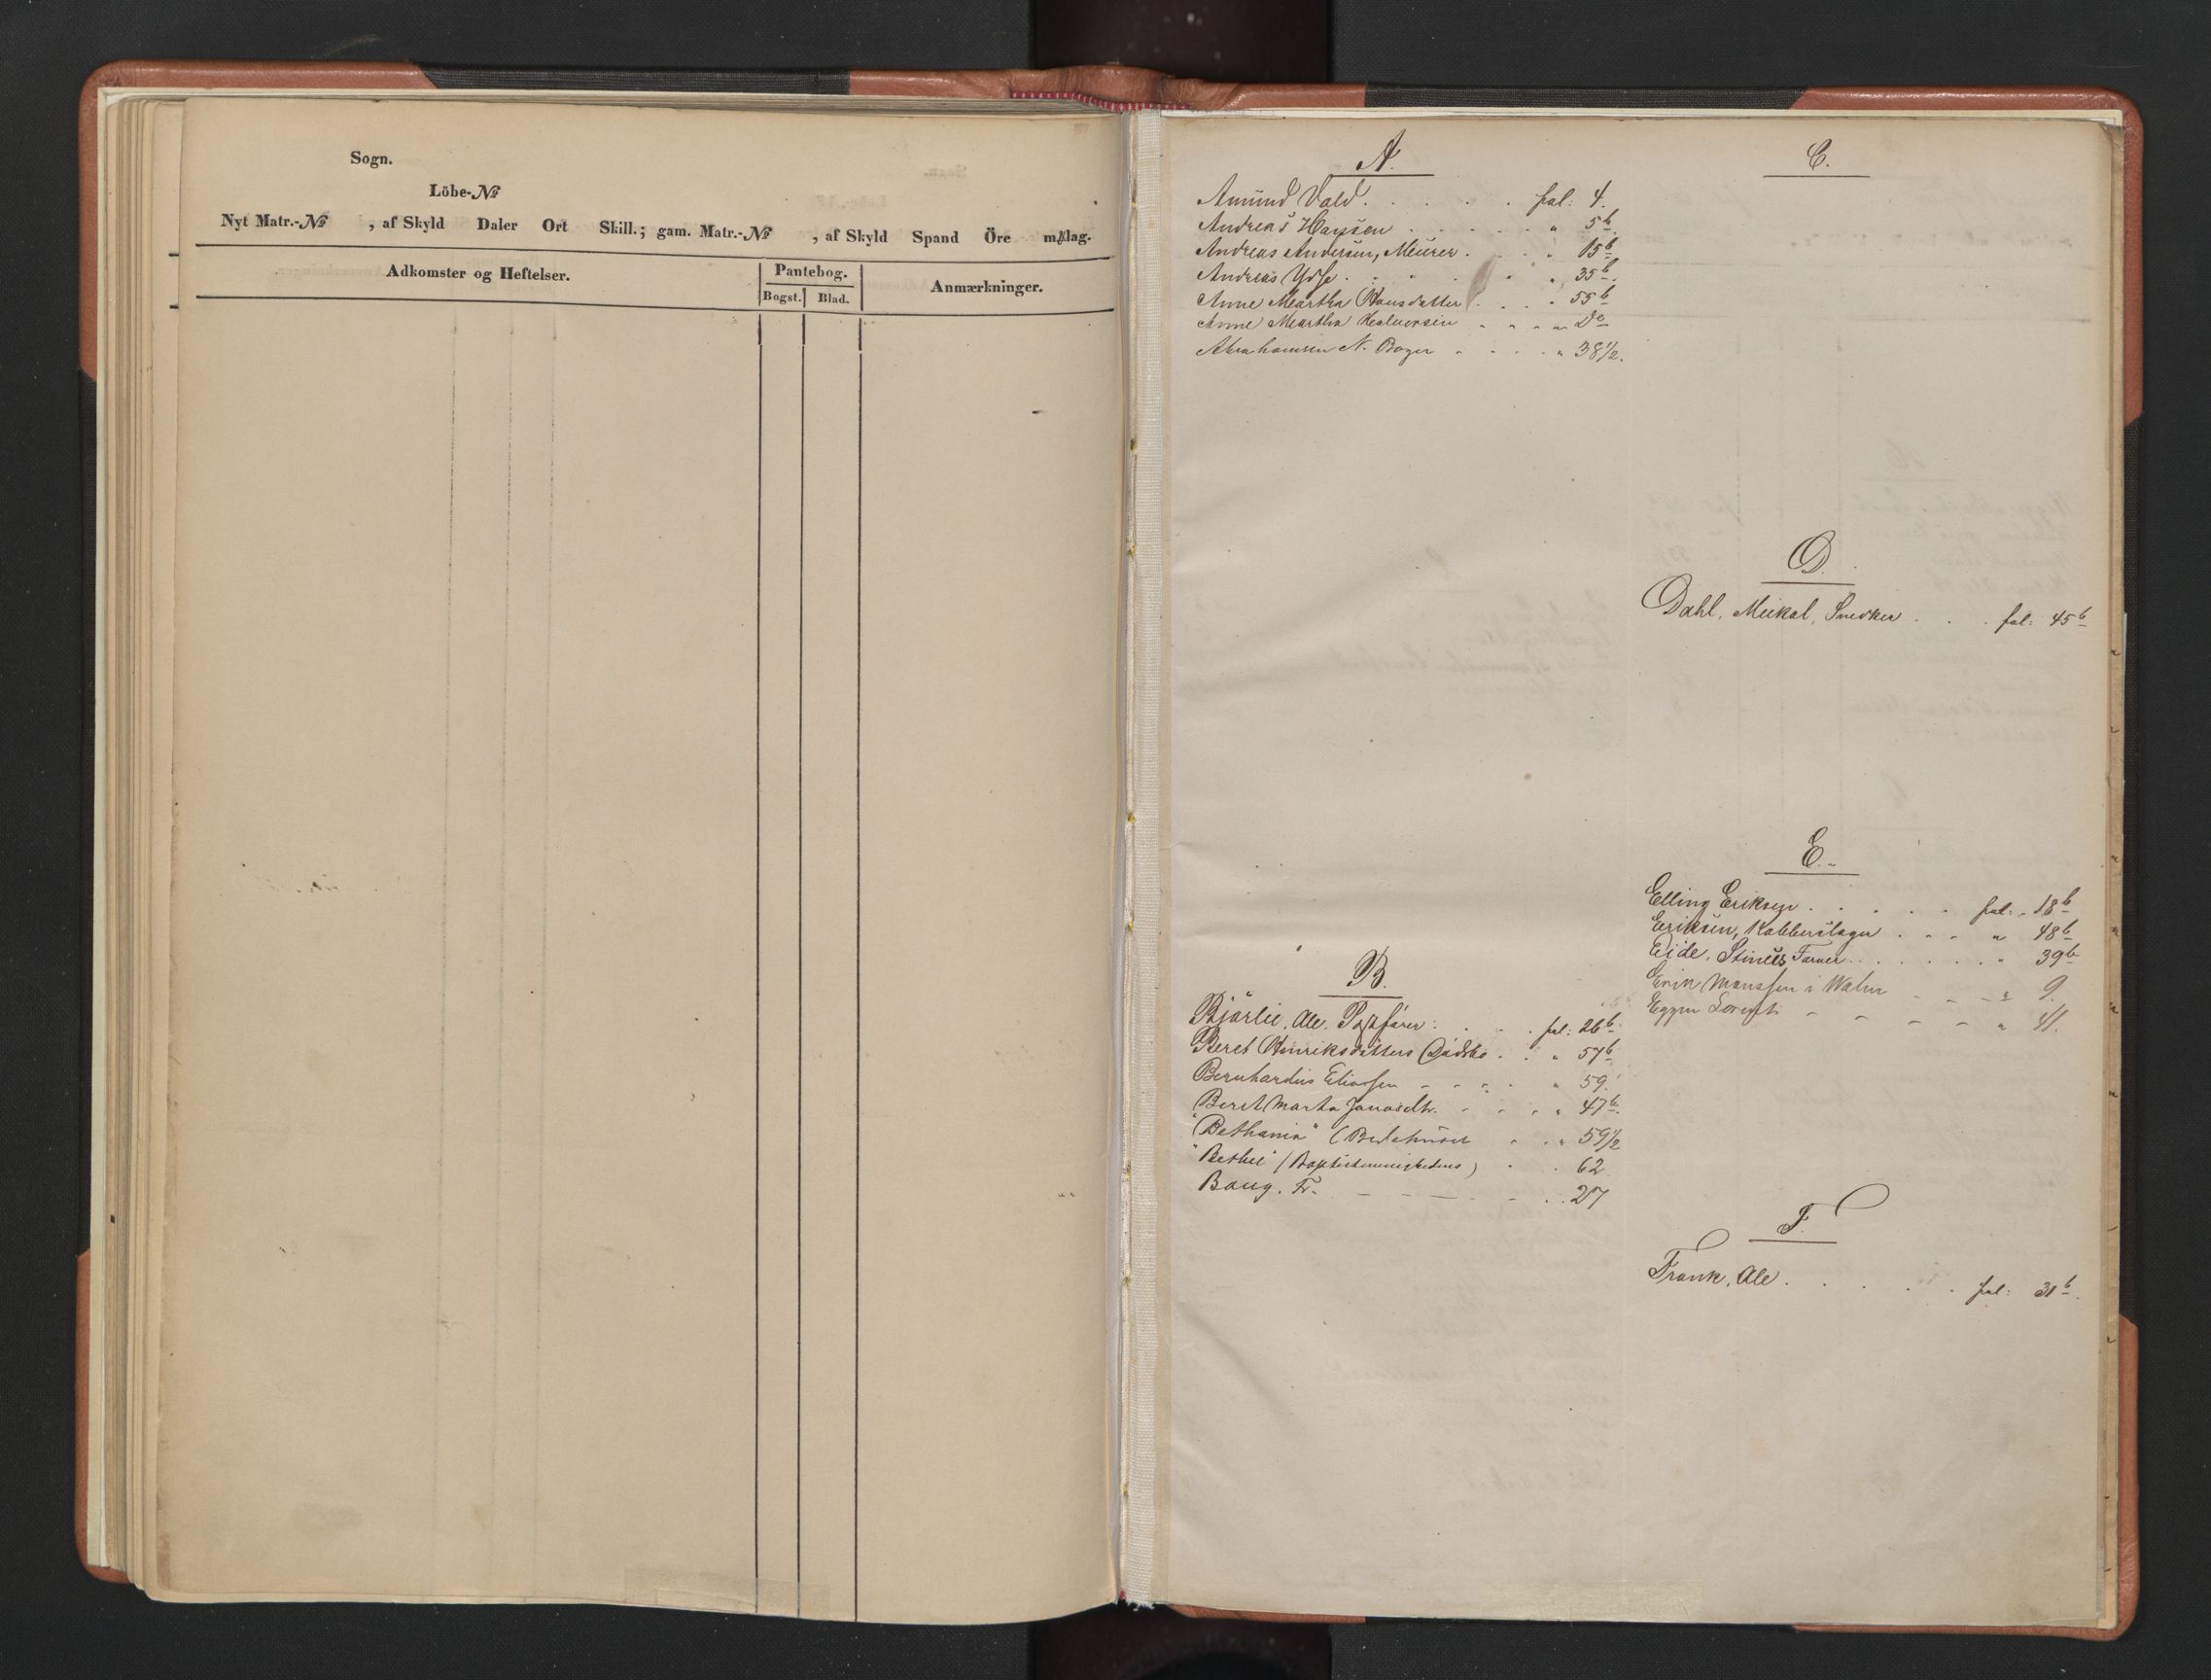 Sogn.
Löbe-№
Nyt Matr.-№ , af Skyld Daler Ort Skill.; gam. Matr.-№ , af Skyld Spand Öre m/lag.
Adkomster og Heftelser.
Pantebog.
Bogst. Blad.
Anmærkninger.
A.
Amund Vald . . . . . fol: 4.
Andreas Hansen . . . . . " 5b
Andreas Andersen, Meurer . . . " 15b
Andreas Ydse . . . . . " 35b
Anne Martha Hansdatter . . . " 55b
Anne Martha Halvorsen " " " " Do
Abrahamsen N. Bager " . . . " 38 1/2.
B.
Björlie, Ole, Postfører . . . fol: 26b
Beret Henriksdatters Dødsbo . . " 57b
Bernhardus Eliassen - - - . " 59.
Beret Marta Jonasdtr. - . . " 47b
"Bethania" (Bedehuset " . . " 59 1/2
"Bethel" (Baptistmenighedens) . . 62
Baug. Fr. - - - - . . 27
C.
D.
Dahl, Mikal, Snedker . . . fol: 45b
E.
Elling Eriksen . . . . . fol: 18b
Eriksen, Kobberslager . . . " 48b
Eide, Stinius, Farver . . . . . " 39b
Erik Monssen i - - " 9.
Eggen Lorents - - - - " 41.
F.
Frank, Ole . . . . . fol: 31b.